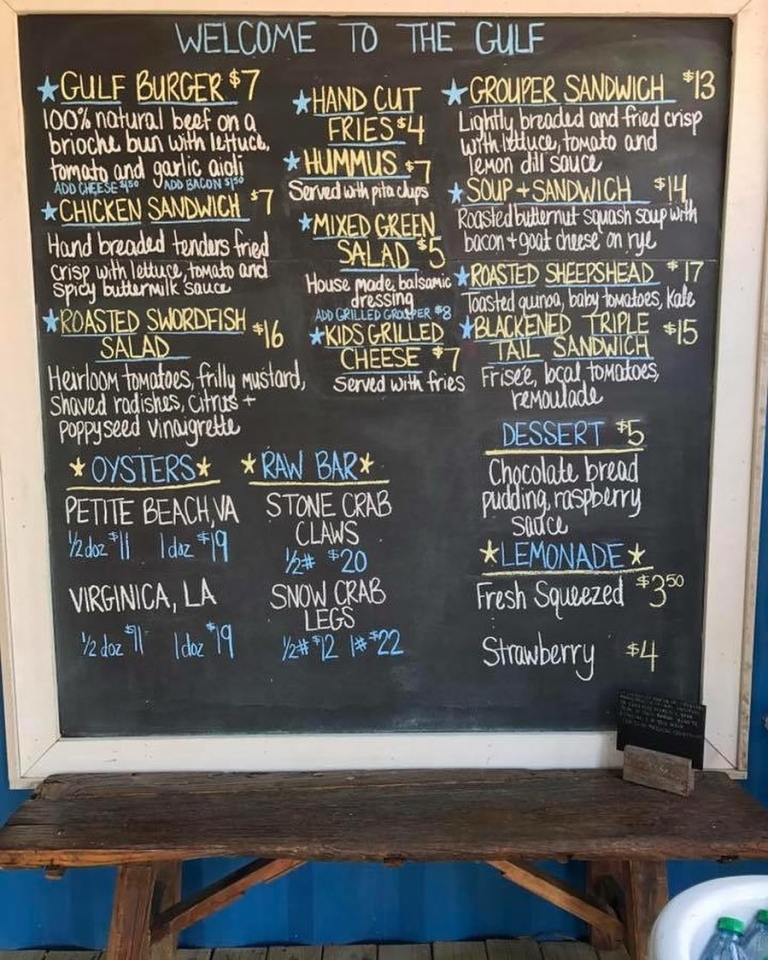 WELCOME TO THE GULF
★GULF BURGER $7
100% natural beef on a
brioche bun with lettuce,
tomato and garlic aioli
ADD CHEESE $1.50 ADD BACON $1.50
★CHICKEN SANDWICH $7
Hand breaded tenders fried
crisp with lettuce, tomato and
spicy buttermilk sauce
★ROASTED SWORDFISH
SALAD $16
Heirloom tomatoes, frilly mustard,
Shaved radishes, citrus +
poppyseed vinaigrette
★HAND CUT
FRIES $4
★HUMMUS $7
Served with pita chips
★MIXED GREEN
SALAD $5
House made balsamic
dressing
ADD GRILLED GROUPER $8
★KIDS GRILLED
CHEESE $7
Served with fries
★GROUPER SANDWICH $13
Lightly breaded and fried crisp
with lettuce, tomato and
lemon dill sauce
★SOUP + SANDWICH $14
Roasted butternut squash soup with
bacon + goat cheese on rye
★ROASTED SHEEPSHEAD $17
Toasted quinoa, baby tomatoes, kale
★BLACKENED TRIPLE
TAIL SANDWICH $15
Friseé, local tomatoes,
remoulade
★OYSTERS★
PETITE BEACH, VA
1/2 doz $11 1 doz $19
VIRGINICA, LA
1/2 doz $11 1 doz $19
★RAW BAR★
STONE CRAB
CLAWS
1/2# $20
SNOW CRAB
LEGS
1/2# $12 1# $22
DESSERT $5
Chocolate bread
pudding, raspberry
sauce
★LEMONADE★
Fresh Squeezed $3.50
Strawberry $4